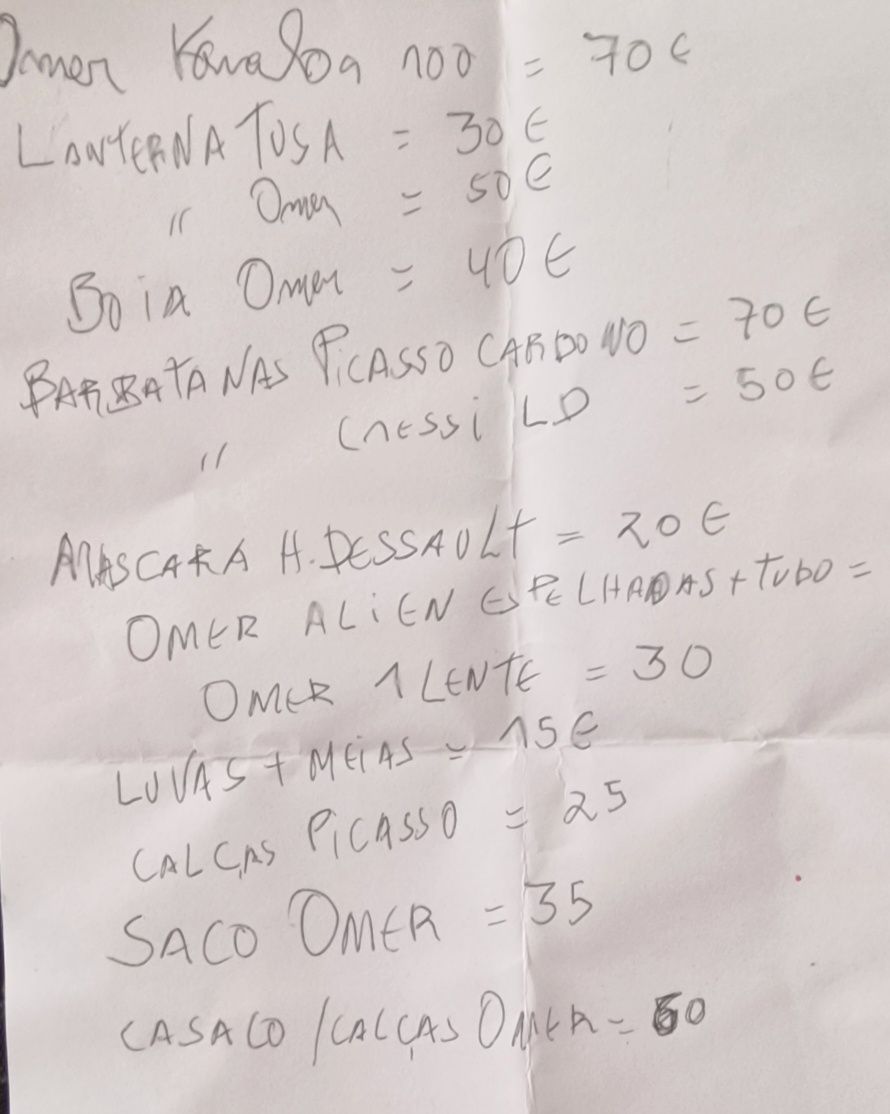 Omer Kavaloa 100 = 70 €
LANTERNA TUSA = 30 €
" Omer = 50 €
BOiA Omer = 40 €
BARBATANAS PiCASSO CARBONO = 70 €
" CRESSi LD = 50 €
MASCARA H.DESSAULT = 20 €
OMER ALiEN ESPELHADAS + TUBO =
OMER 1 LENTE = 30
LUVAS + MEiAS = 15 €
CALÇAS PiCASSO = 25
SACO OMER = 35
CASACO / CALÇAS OMER = 60